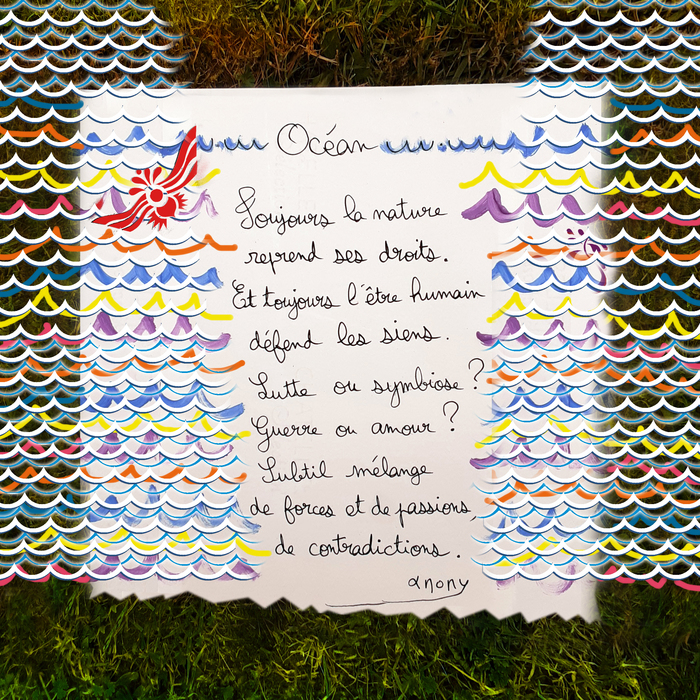 Océan
Toujours la nature
reprend ses droits.
Et toujours l'être humain
défend les siens.
Lutte ou symbiose ?
Guerre ou amour ?
Subtil mélange
de forces et de passions,
de contradictions.
anony